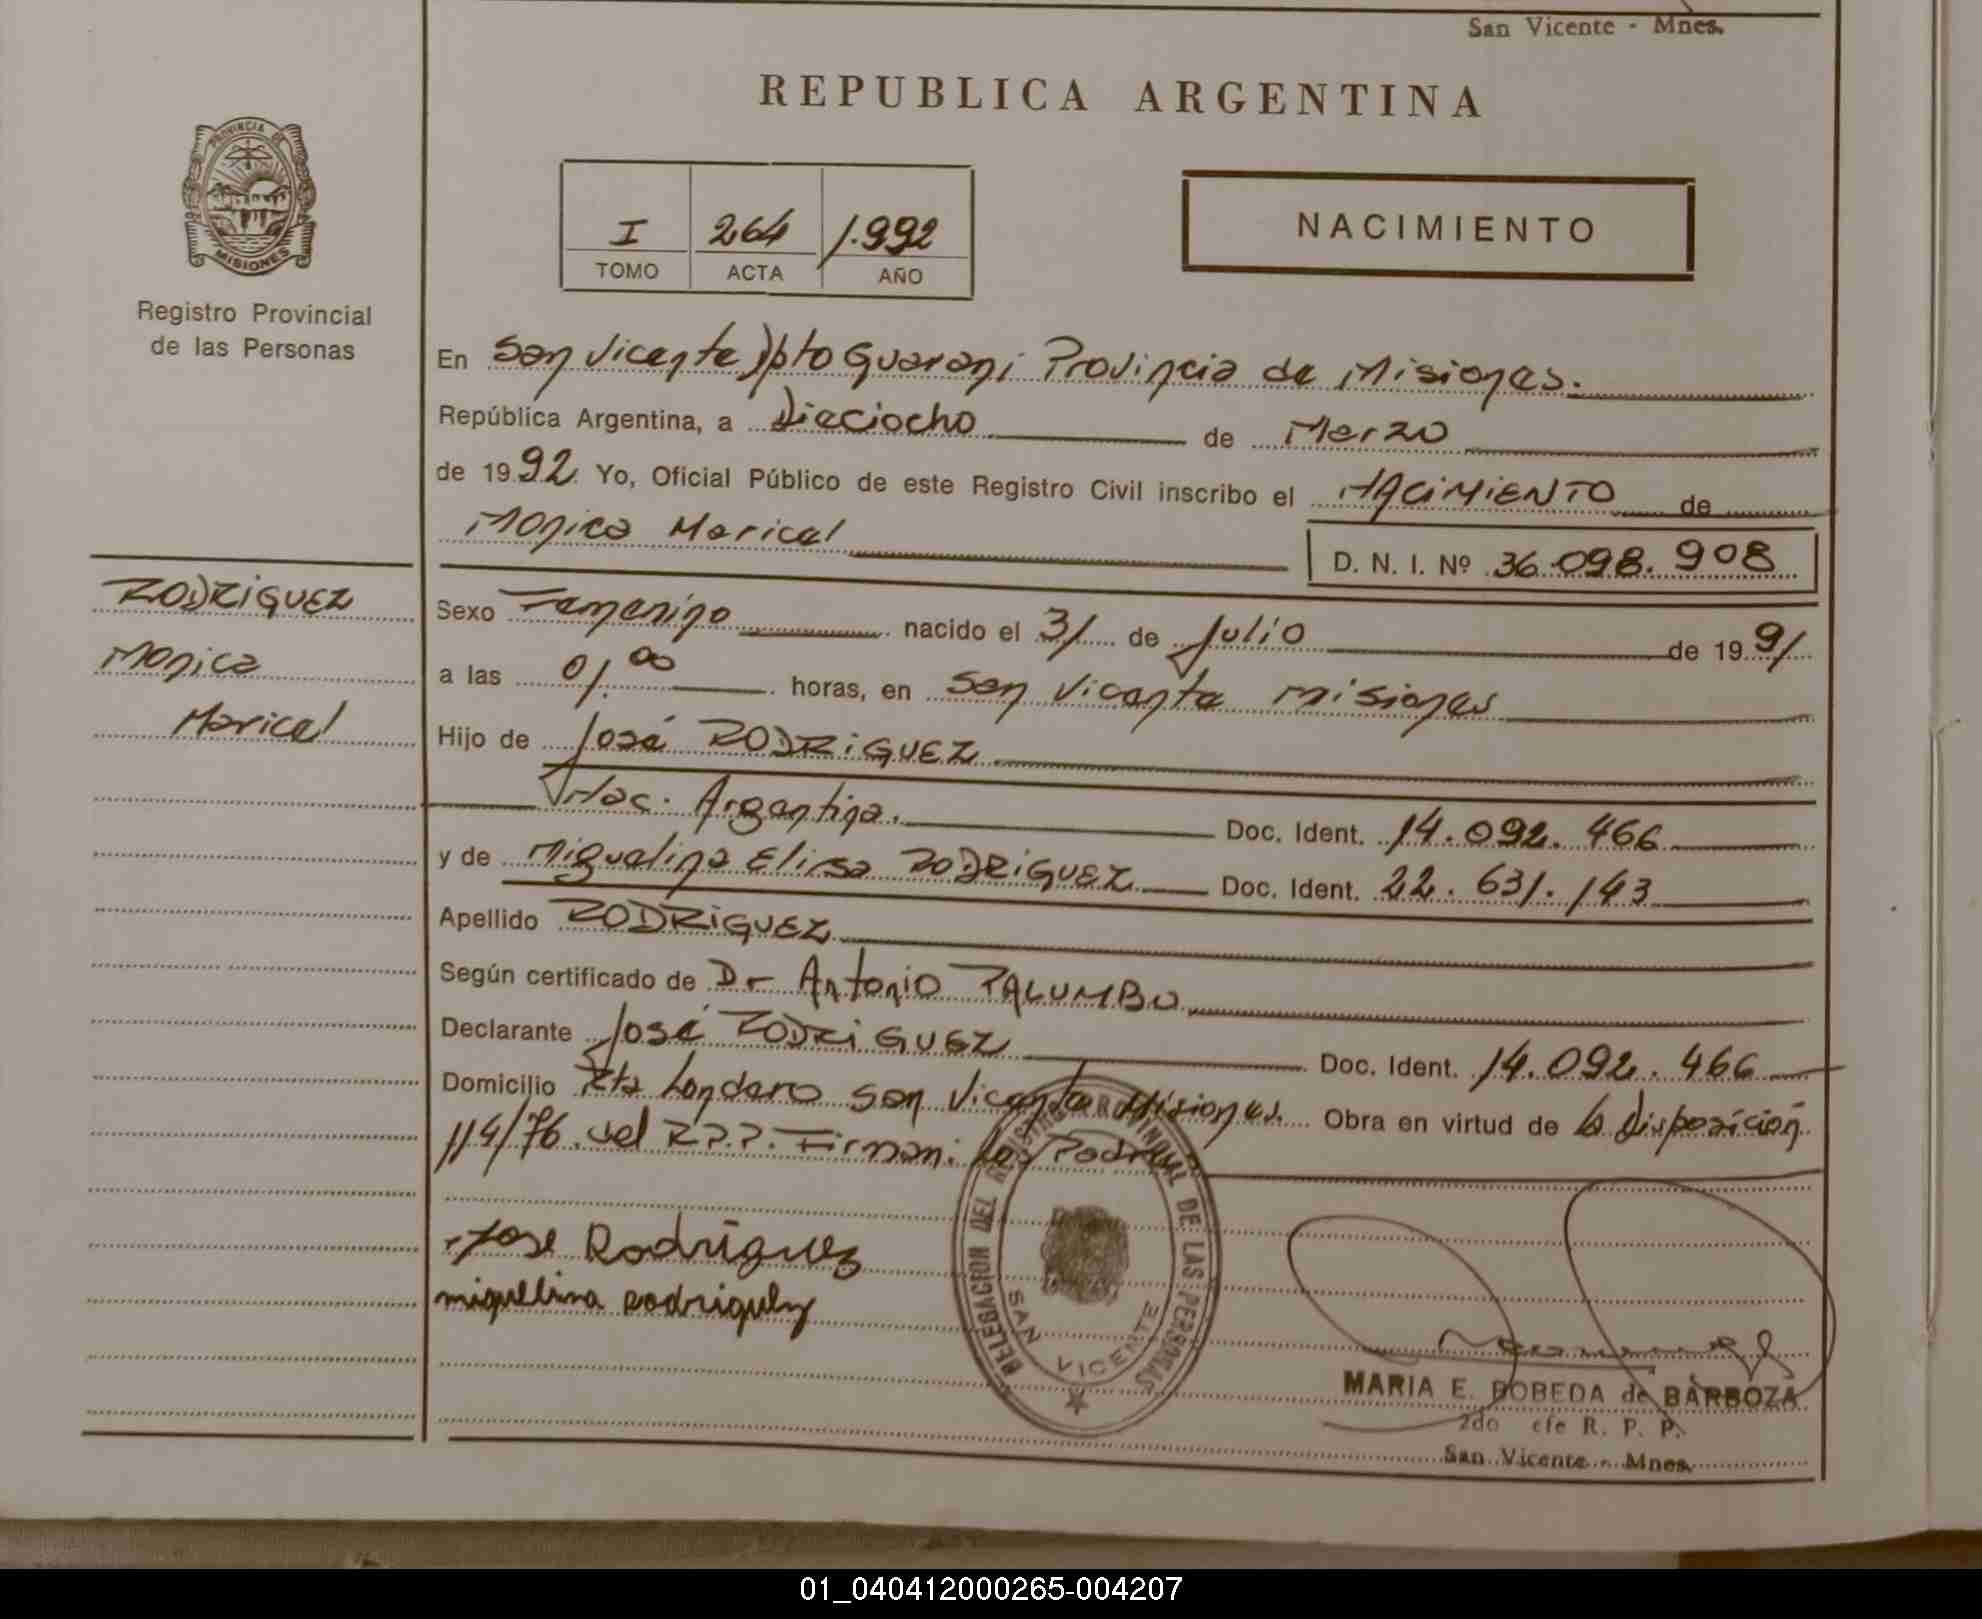 San Vicente - Mnes.
REPUBLICA ARGENTINA
PROVINCIA DE
MISIONES
Registro Provincial
de las Personas
I 264 1.992
TOMO ACTA AÑO
NACIMIENTO
En San Vicente Dpto Guarani Provincia de Misiones.
República Argentina, a Dieciocho de Marzo
de 1992 Yo, Oficial Público de este Registro Civil inscribo el NACIMIENTO de
Monica Maricel
D. N. I. Nº 36.098.908
RODRIGUEZ
Monica
Maricel
Sexo Femenino nacido el 31 de Julio de 1991
a las 01.00 horas, en San Vicente Misiones
Hijo de José RODRIGUEZ
Nac. Argentina. Doc. Ident. 14.092.466
y de Miguelina Elisa RODRIGUEZ Doc. Ident. 22.631.143
Apellido RODRIGUEZ
Según certificado de Dr Antonio PALUMBO
Declarante José RODRIGUEZ Doc. Ident. 14.092.466
Domicilio Londero San Vicente Misiones. Obra en virtud de la disposición
114/76 del R.P.P. Firman: los Padres
Jose Rodriguez
miguelina rodriguez
DELEGACION DEL REGISTRO PROVINCIAL DE LAS PERSONAS
SAN VICENTE
MARIA E. BOBEDA de BARBOZA
2do efe R. P. P.
San Vicente - Mnes.
01_040412000265-004207